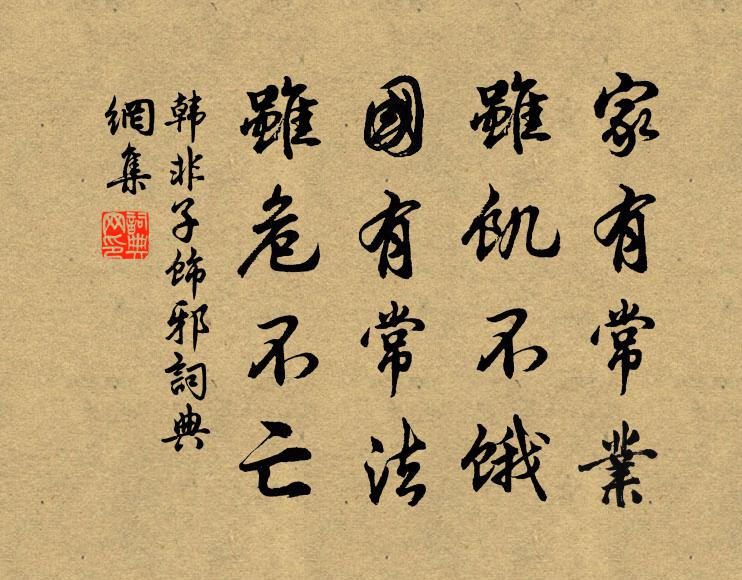 家有常業
雖飢不餓
國有常法
雖危不亡
韩非子飾邪詞典
網集
詞典
网印